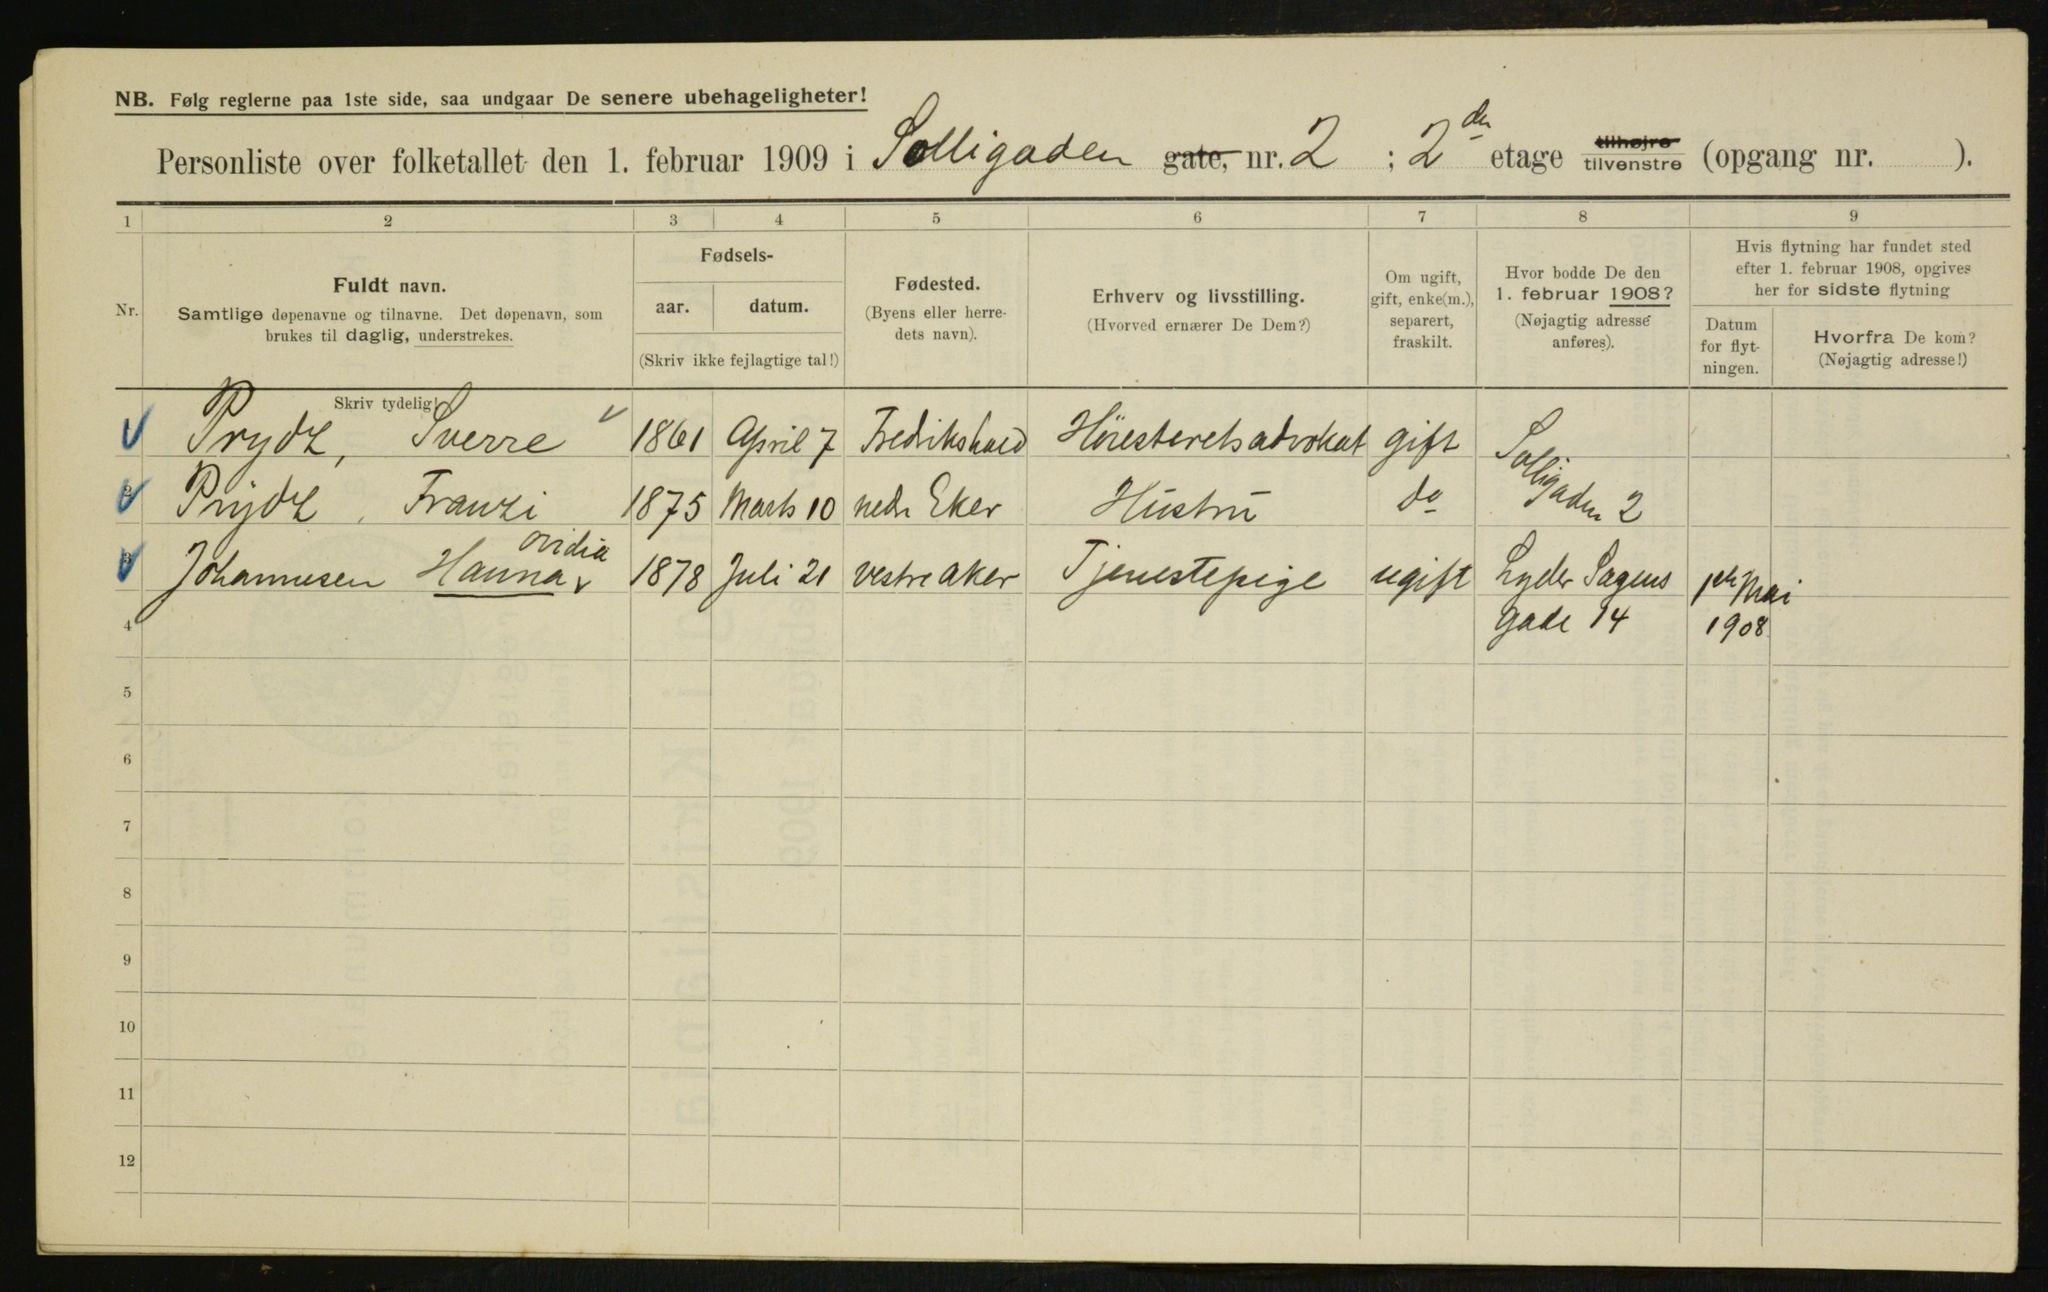 NB. Følg reglerne paa 1ste side, saa undgaar De senere ubehageligheter!
Personliste over folketallet den 1. februar 1909 i Solligaden gate, nr. 2 ; 2den etage tilhøjre tilvenstre (opgang nr. ).
1 2 3 4 5 6 7 8 9
Nr.
Fuldt navn.
Samtlige døpenavne og tilnavne. Det døpenavn, som
brukes til daglig, understrekes.
Fødsels-
aar. datum.
(Skriv ikke fejlagtige tal!)
Fødested.
(Byens eller herre-
dets navn).
Erhverv og livsstilling.
(Hvorved ernærer De Dem?)
Om ugift,
gift, enke(m.),
separert,
fraskilt.
Hvor bodde De den
1. februar 1908?
(Nøjagtig adresse
anføres).
Hvis flytning har fundet sted
efter 1. februar 1908, opgives
her for sidste flytning
Datum
for flyt-
ningen.
Hvorfra De kom?
(Nøjagtig adresse!)
Skriv tydelig!
Prydz, Sverre 1861 April 7 Fredrikshald Høiesteretsadvokat gift Solligaden 2
2 Prydz, Franzi 1875 Marts 10 nedre Eker Hustru do
3 Johannesen Hanna Ovidia 1878 Juli 21 vestre Aker Tjenestepige ugift Lyder Sagens 1ste Mai
4 gade 14 1908
5
6
7
8
9
10
11
12